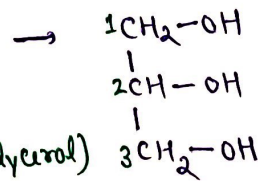 → 1CH2-OH
2CH-OH
lycerol) 3CH2-OH